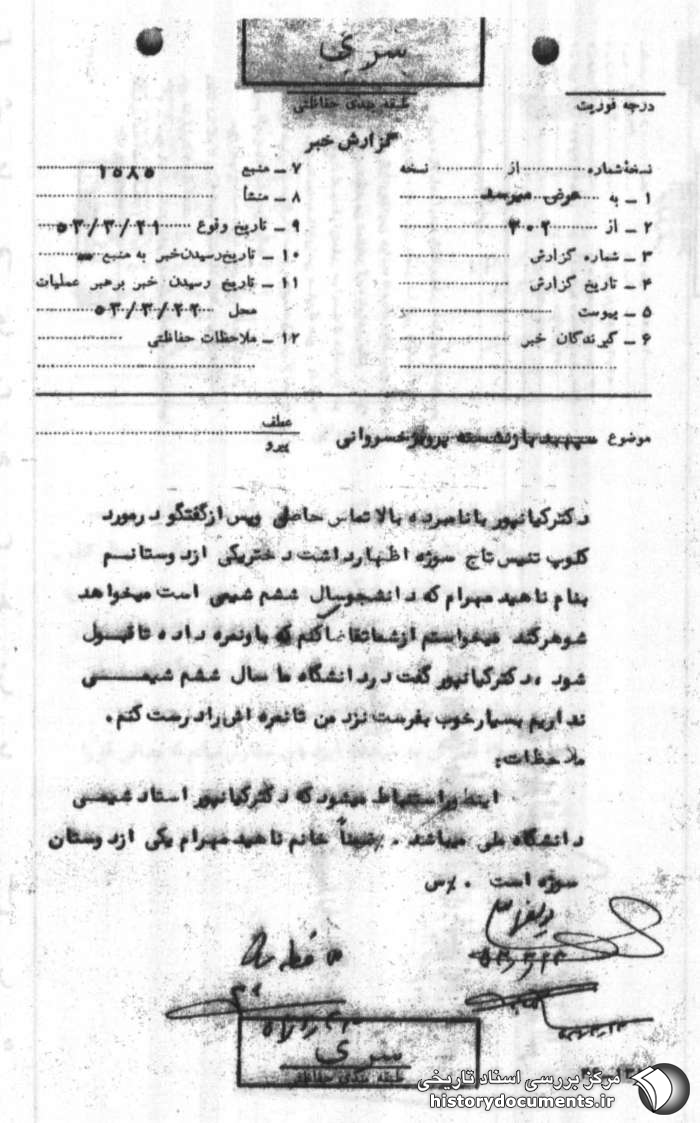 سری
طبقه بندی حفاظتی
درجه فوریت
گزارش خبر
نسخه شماره از نسخه
۱ ـ به عرض میرسد
۲ ـ از ۳۰۲
۳ ـ شماره گزارش
۴ ـ تاریخ گزارش
۵ ـ پیوست
۶ ـ گیرندگان خبر
۷ ـ منبع ۱۰۸۵
۸ ـ منشأ
۹ ـ تاریخ وقوع ۵۳/۳/۲۱
۱۰ ـ تاریخ رسیدن خبر به منبع ـ
۱۱ ـ تاریخ رسیدن خبر برهبر عملیات
محل ۵۳/۳/۲۲
۱۲ ـ ملاحظات حفاظتی
موضوع سپهبد بازنشسته پرویز خسروانی
عطف
پیرو
دکتر کیانپور با نامبرده بالا تماس حاصل و پس از گفتگو در مورد
کلوپ تنیس تاج سوژه اظهار داشت دختر یکی از دوستانم
بنام ناهید مهرام که دانشجو سال ششم شیمی است میخواهد
شوهر کند میخواستم از شما تقاضا کنم که باو نمره داده تا قبول
شود ، دکتر کیانپور گفت در دانشگاه ما سال ششم شیمی
نداریم بسیار خوب بفرست نزد من تا نمره اش را درست کنم .
ملاحظات :
اینطور استنباط میشود که دکتر کیانپور استاد شیمی
دانشگاه ملی میباشد . ضمناً خانم ناهید مهرام یکی از دوستان
سوژه است .
سری
طبقه بندی حفاظتی
مرکز بررسی اسناد تاریخی
historydocuments.ir